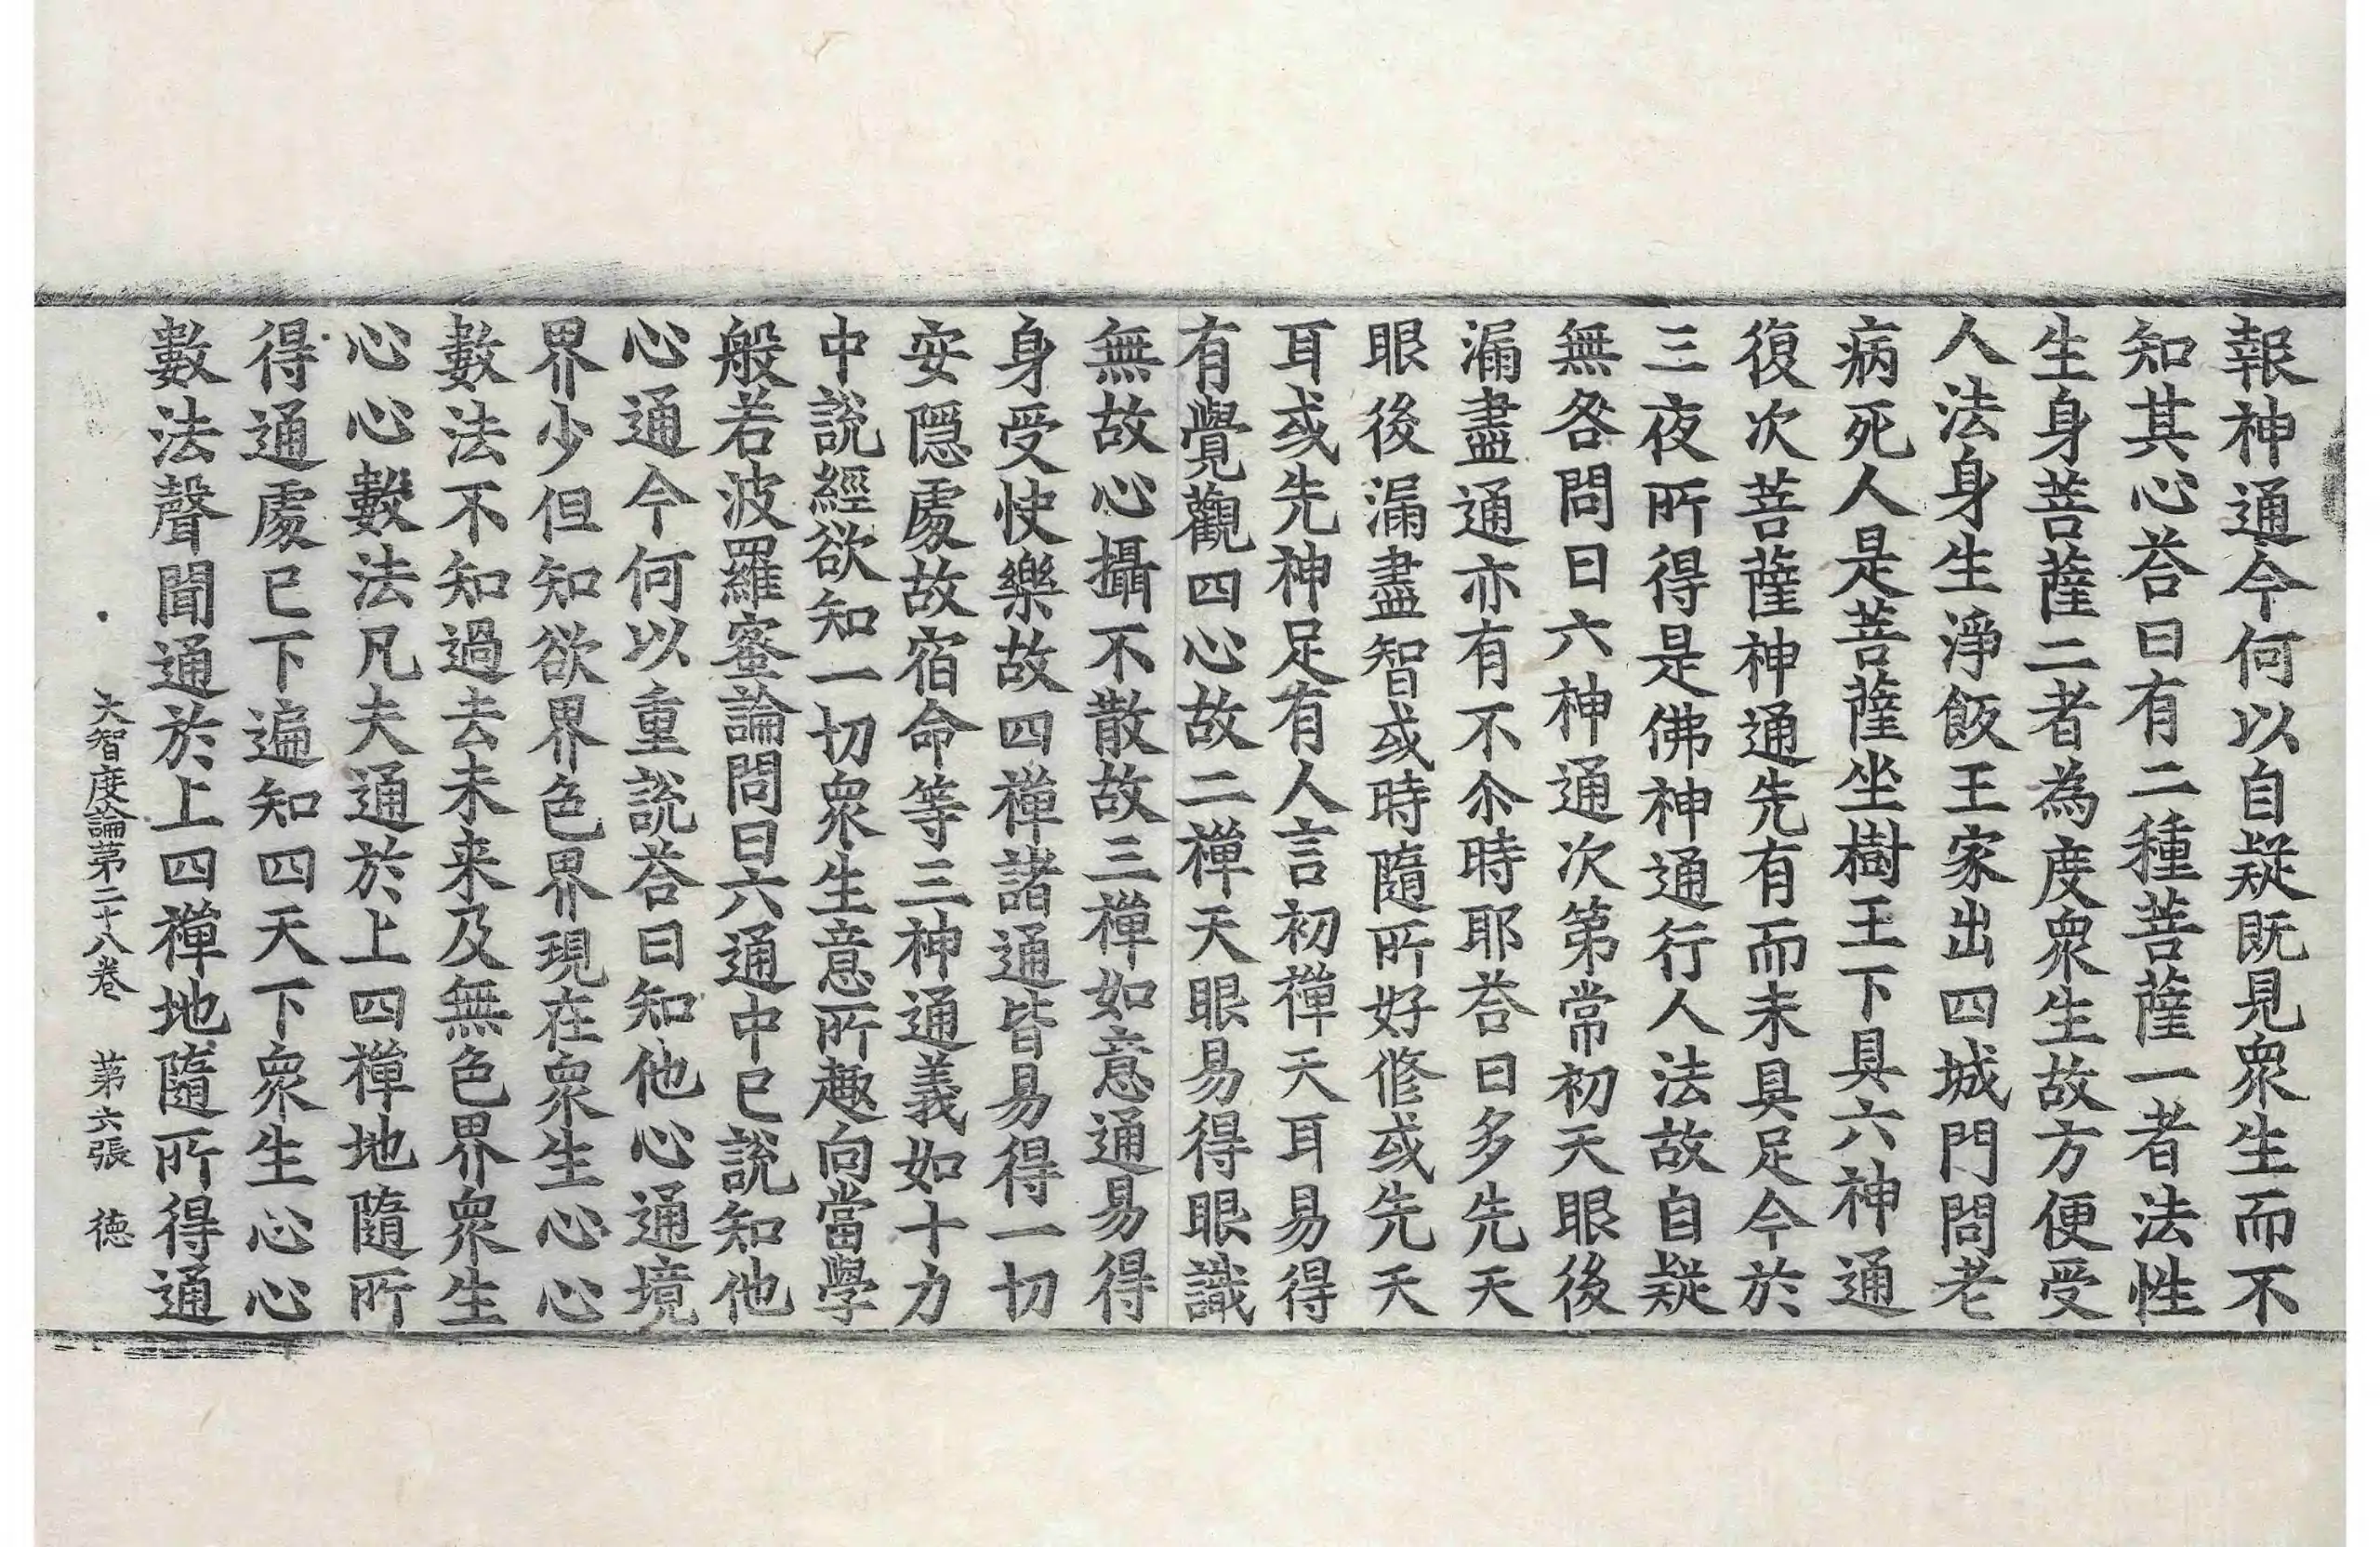 報神通今何以自疑既見衆生而不
知其心荅曰有二種菩薩一者法性
生身菩薩二者為度衆生故方便受
人法身生淨飯王家出四城門問老
病死人是菩薩坐樹王下具六神通
復次菩薩神通先有而未具足今於
三夜所得是佛神通行人法故自疑
無咎問曰六神通次第常初天眼後
漏盡通亦有不尒時耶荅曰多先天
眼後漏盡智或時隨所好修或先天
耳或先神足有人言初禪天耳易得
有覺觀四心故二禪天眼易得眼識
無故心攝不散故三禪如意通易得
身受快樂故四禪諸通皆易得一切
安隱處故宿命等三神通義如十力
中說經欲知一切衆生意所趣向當學
般若波羅蜜論問曰六通中已說知他
心通今何以重說荅曰知他心通境
界少但知欲界色界現在衆生心心
數法不知過去未来及無色界衆生
心心數法凡夫通於上四禪地隨所
得通處已下遍知四天下衆生心心
數法聲聞通於上四禪地隨所得通
大智度論第二十八卷　第六張　德